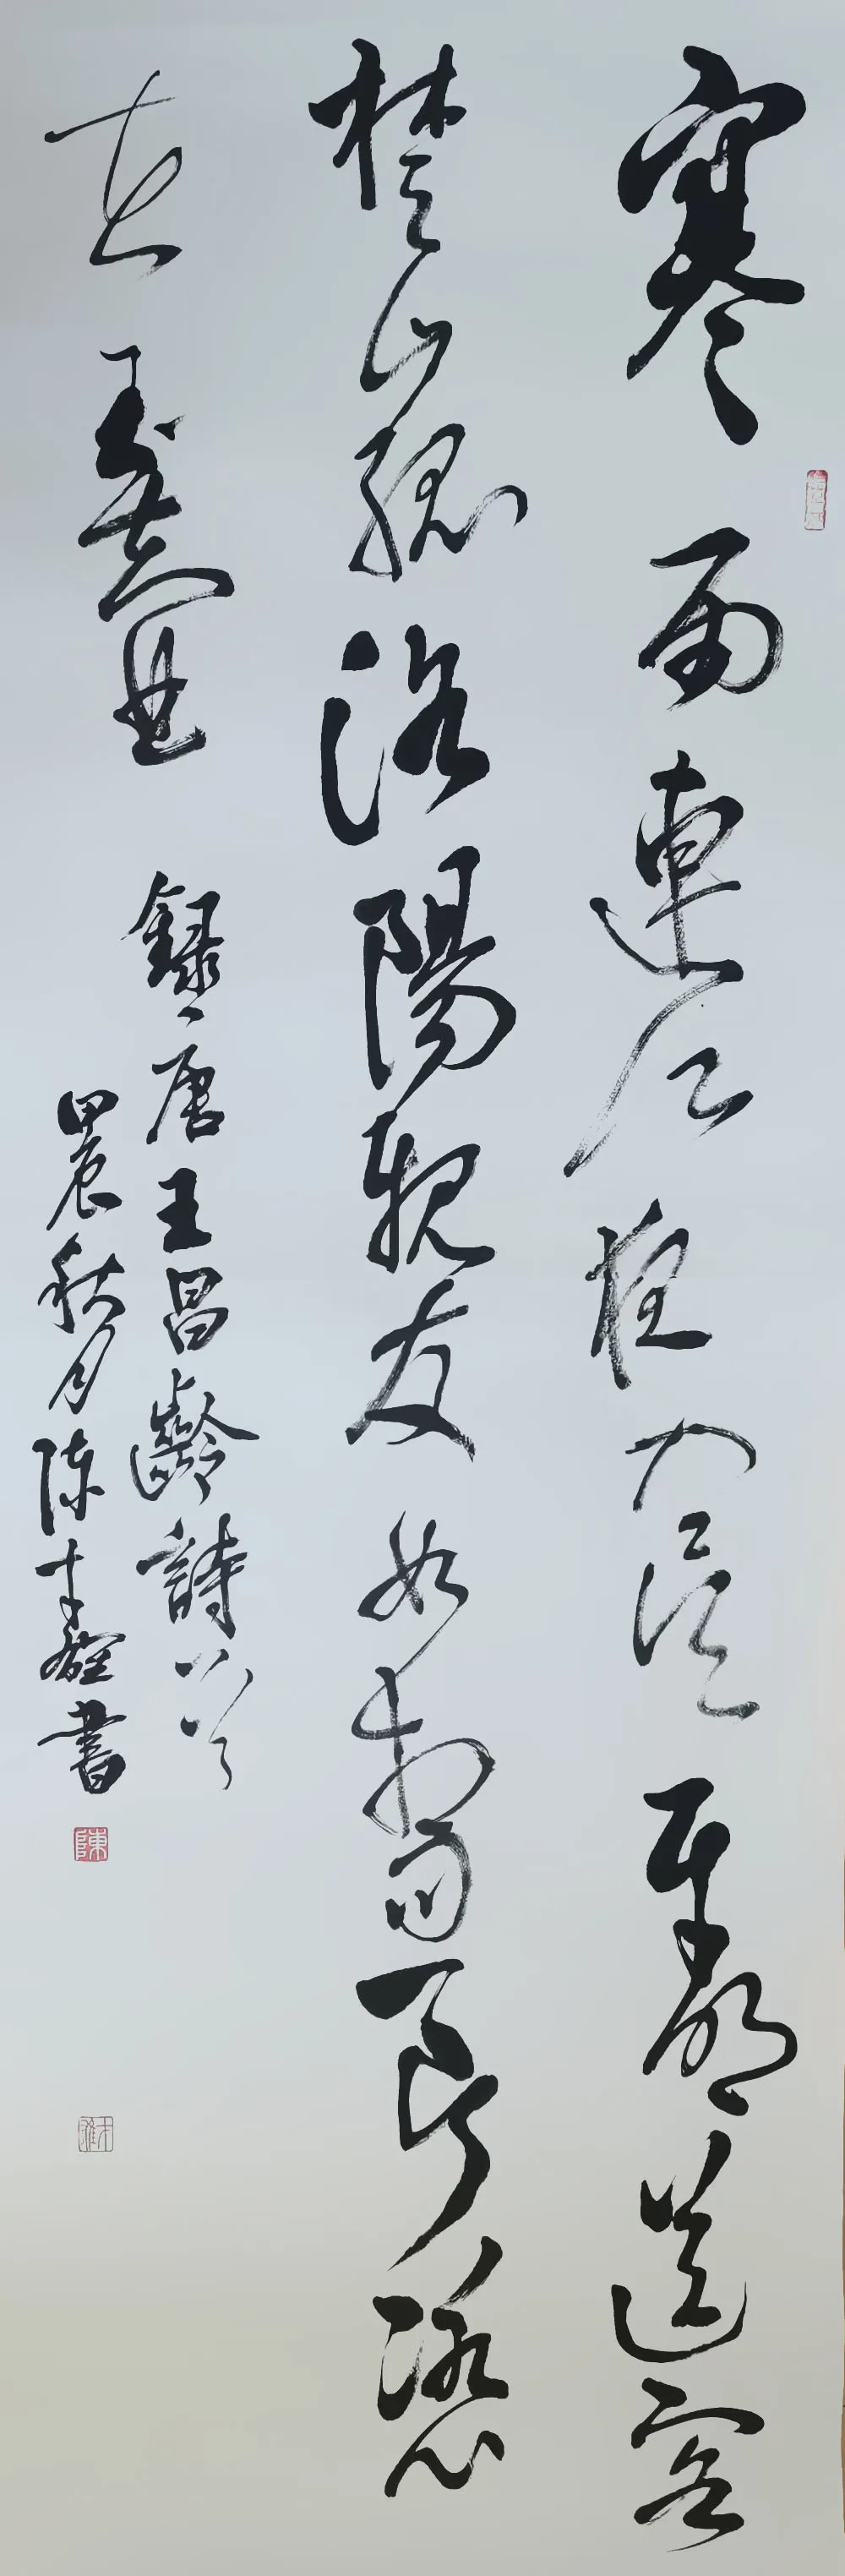 寒雨連江夜入吳平明送客
楚山孤洛陽親友如相問一片冰心
在玉壺
錄唐王昌齡詩一首
甲辰秋月陳才雄書
陳